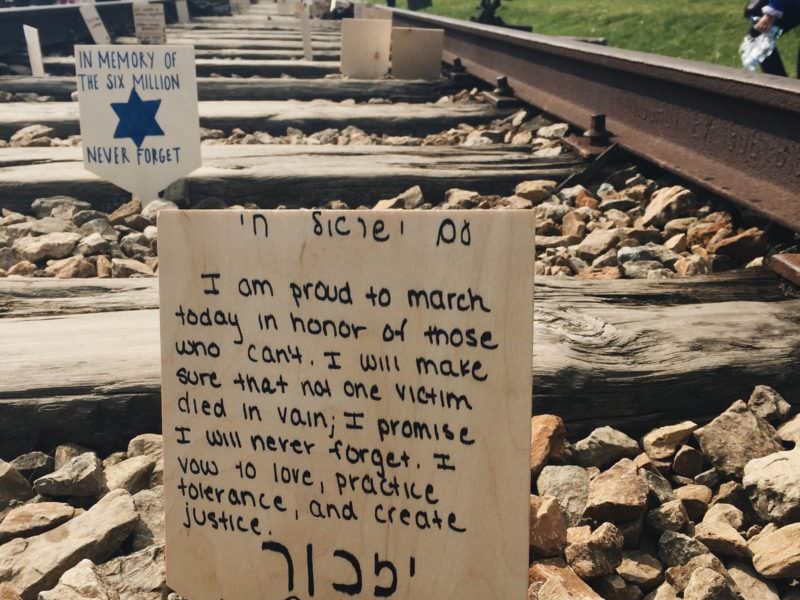 IN MEMORY OF
THE SIX MILLION
NEVER FORGET
עם ישראל חי
I am proud to march
today in honor of those
who can't. I will make
sure that not one victim
died in vain; I promise
I will never forget. I
vow to love, practice
tolerance, and create
justice.
יזכור